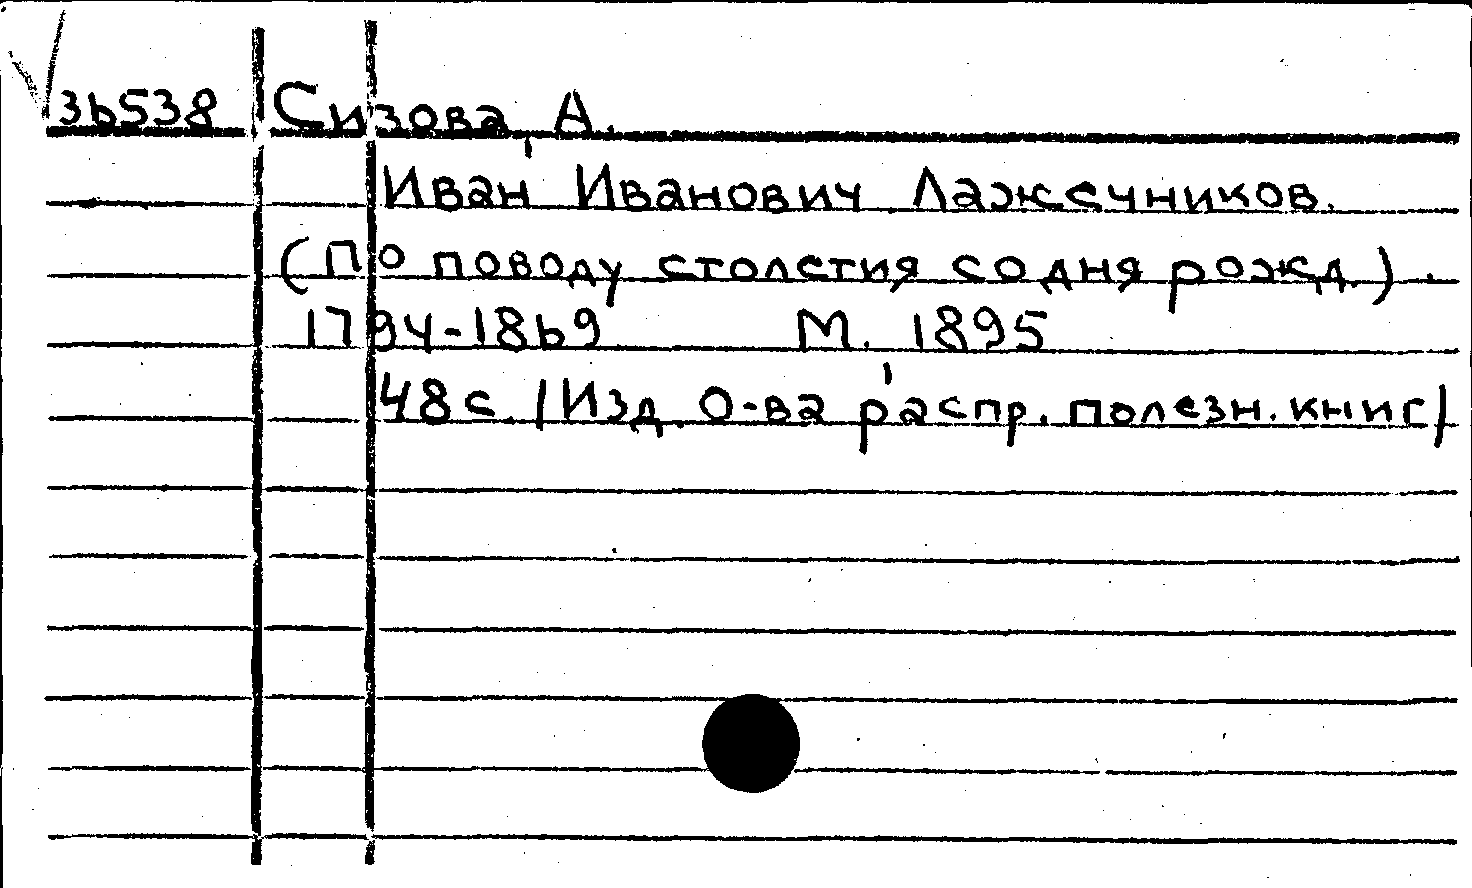 36538 Сизова, А.
Иван Иванович Лажечников.
(По поводу столетия со дня рожд.).
1794-1869 М. 1895
48 с. /Изд. О-ва распр. полезн. книг/